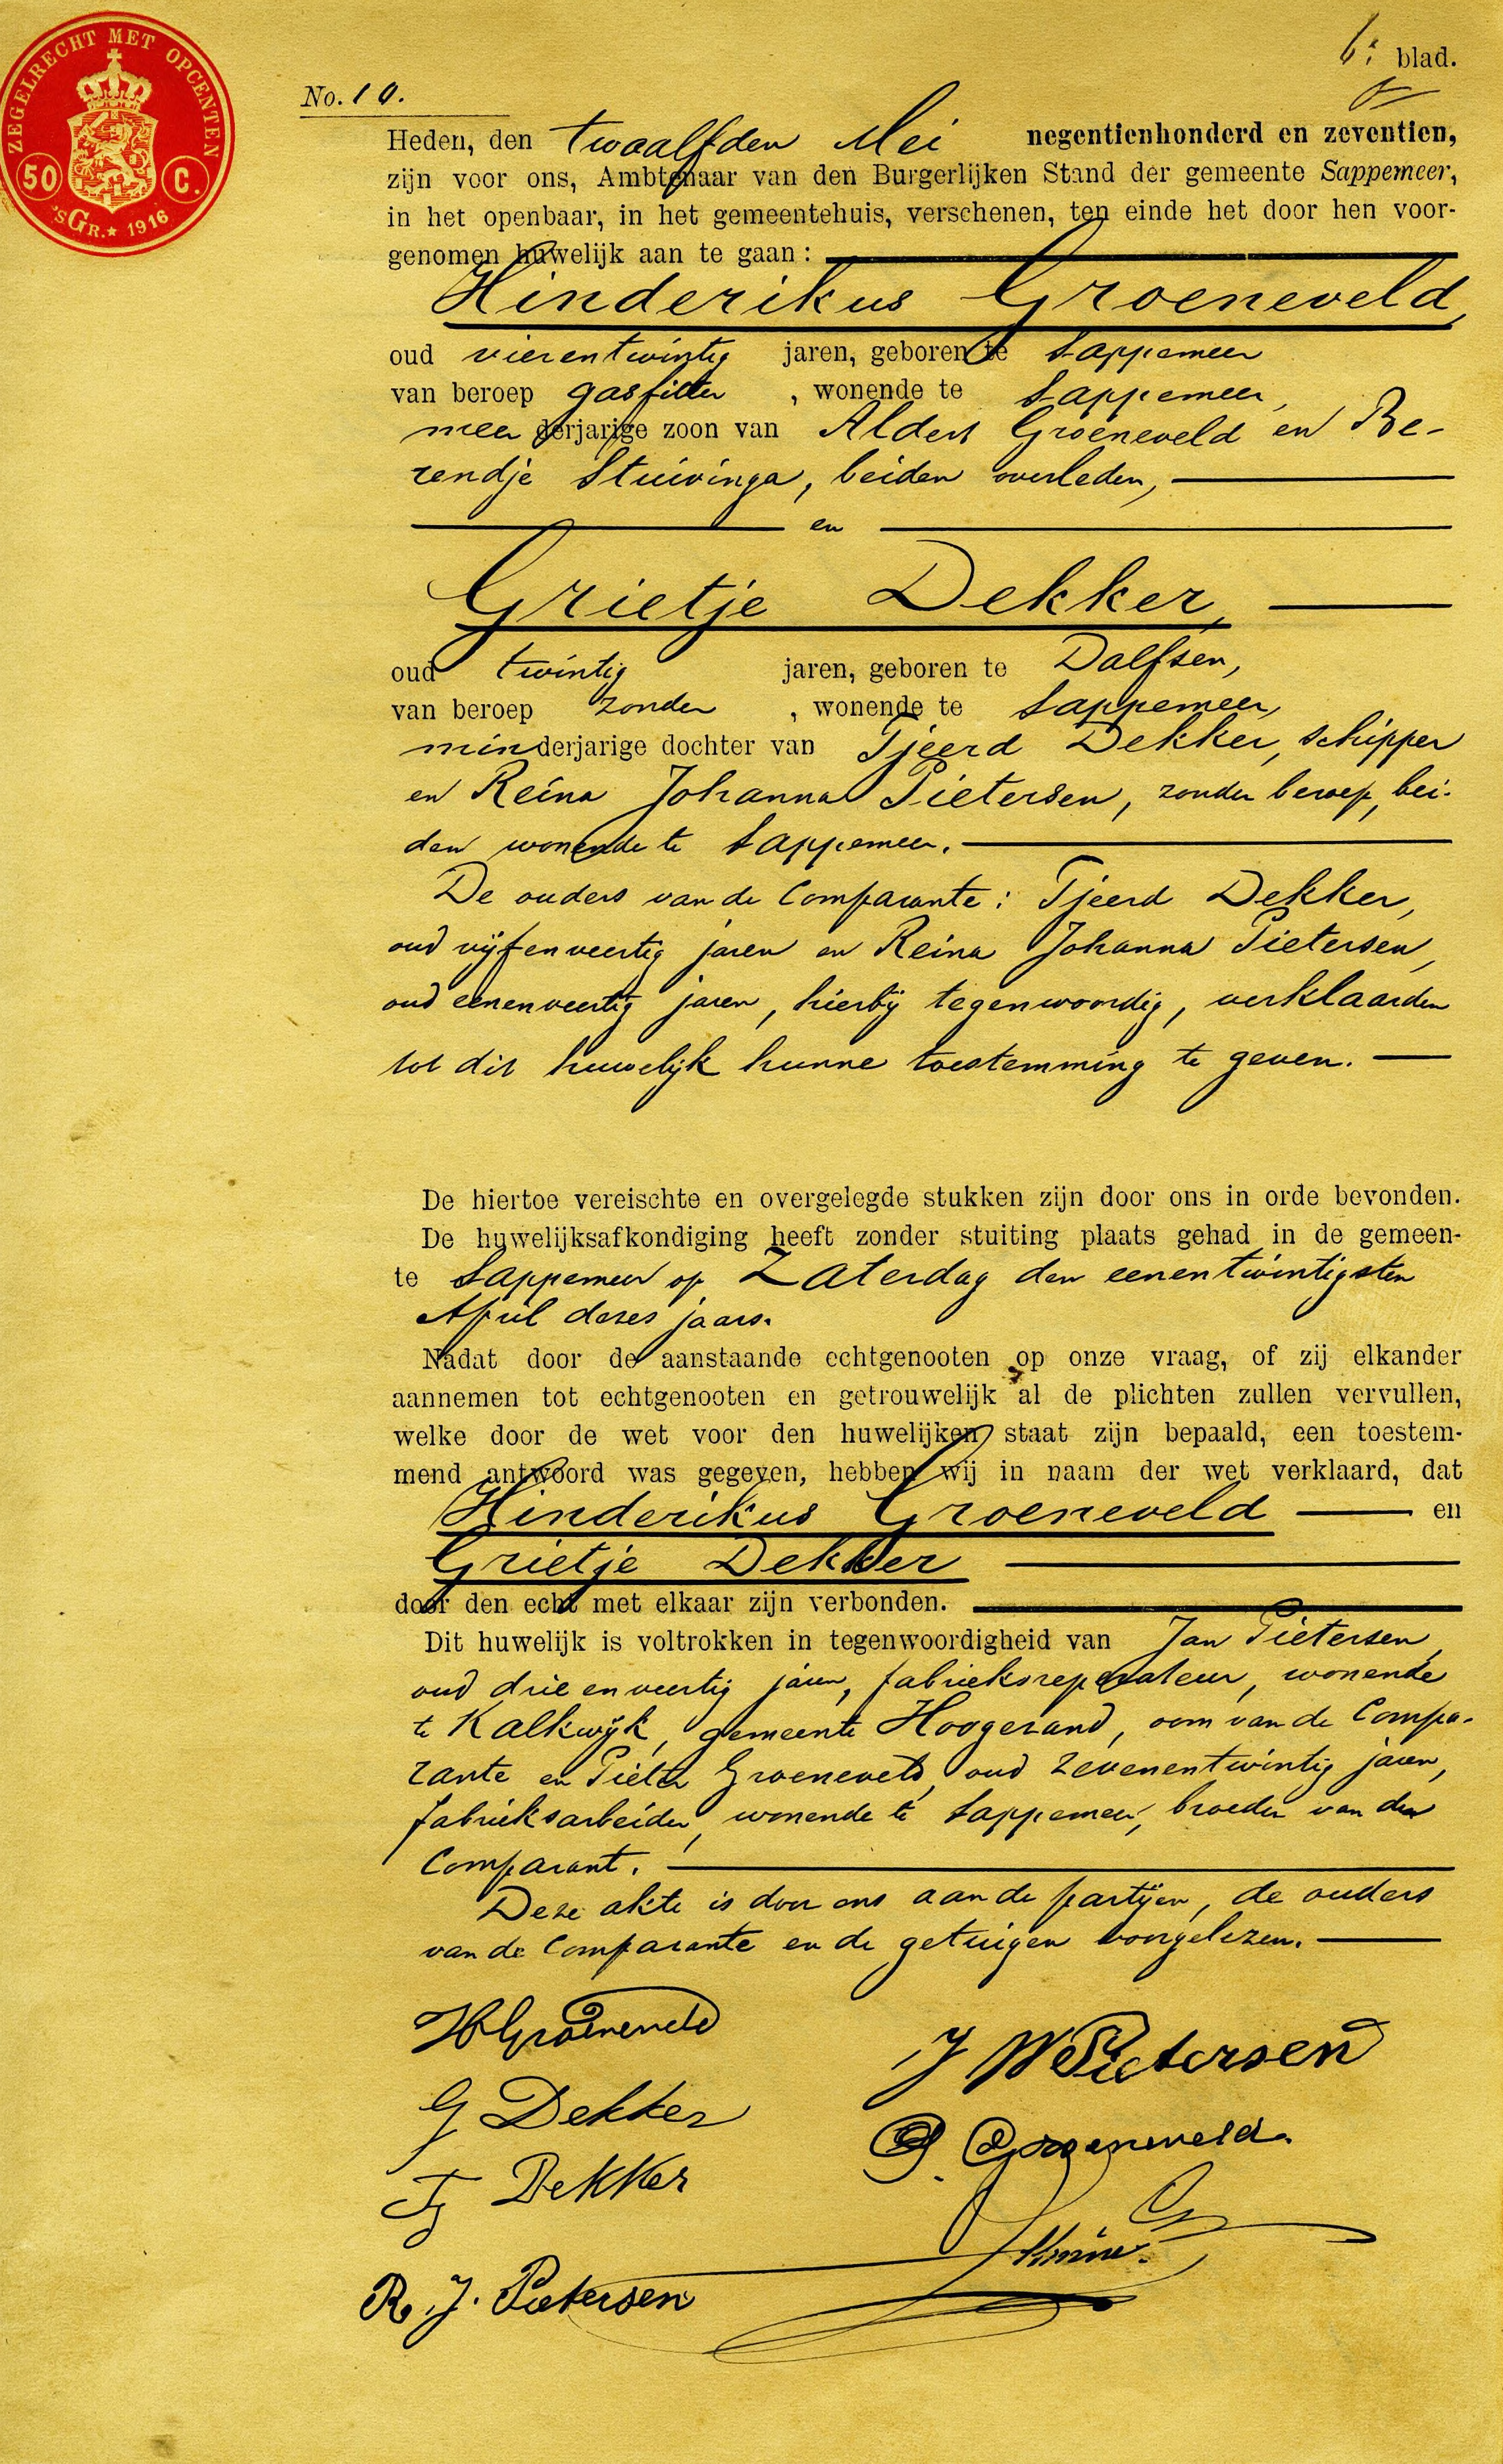 ZEGELRECHT MET OPCENTEN
50 C.
'SGR.★ 1916
6e blad.
No. 10.
Heden, den twaalfden Mei negentienhonderd en zeventien,
zijn voor ons, Ambtenaar van den Burgerlijken Stand der gemeente Sappemeer,
in het openbaar, in het gemeentehuis, verschenen, ten einde het door hen voor-
genomen huwelijk aan te gaan:
Hinderikus Groeneveld,
oud vierentwintig jaren, geboren te Sappemeer
van beroep gasfitter, wonende te Sappemeer,
meerderjarige zoon van Aldert Groeneveld en Be-
rendje Stuivinga, beiden overleden,
en
Grietje Dekker,
oud twintig jaren, geboren te Dalfsen,
van beroep zonder, wonende te Sappemeer,
minderjarige dochter van Tjeerd Dekker, schipper
en Reina Johanna Pietersen, zonder beroep, bei-
den wonende te Sappemeer.
De ouders van de Comparante: Tjeerd Dekker,
oud vijfenveertig jaren en Reina Johanna Pietersen,
oud eenenveertig jaren, hierbij tegenwoordig, verklaarden
tot dit huwelijk hunne toestemming te geven.
De hiertoe vereischte en overgelegde stukken zijn door ons in orde bevonden.
De huwelijksafkondiging heeft zonder stuiting plaats gehad in de gemeen-
te Sappemeer op Zaterdag den eenentwintigsten
April dezes jaars.
Nadat door de aanstaande echtgenooten op onze vraag, of zij elkander
aannemen tot echtgenooten en getrouwelijk al de plichten zullen vervullen,
welke door de wet voor den huwelijken staat zijn bepaald, een toestem-
mend antwoord was gegeven, hebben wij in naam der wet verklaard, dat
Hinderikus Groeneveld en
Grietje Dekker
door den echt met elkaar zijn verbonden.
Dit huwelijk is voltrokken in tegenwoordigheid van Jan Pietersen,
oud drieenveertig jaren, fabrieksreparateur, wonende
te Kalkwijk, gemeente Hoogezand, oom van de Compa-
rante en Pieter Groeneveld, oud zevenentwintig jaren,
fabrieksarbeider, wonende te Sappemeer, broeder van den
Comparant.
Deze akte is door ons aan de partijen, de ouders
van de Comparante en de getuigen voorgelezen.
H Groeneveld
J W Pietersen
G Dekker
P. Groeneveld.
Tj Dekker
R. J. Pietersen